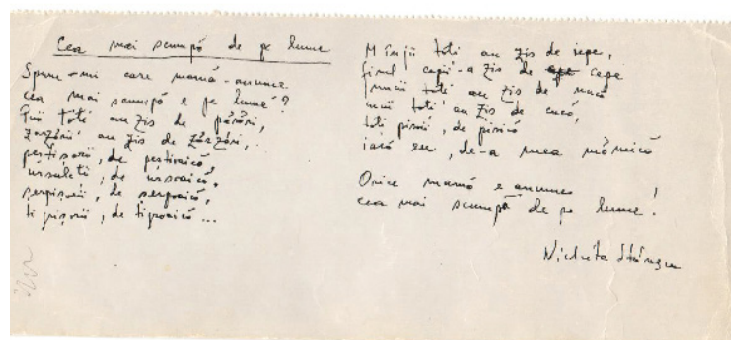 Cea mai scumpă de pe lume
Spune-mi care mamă-anume
cea mai scumpă e pe lume?
Puii toți au zis de păsări,
zarzării au zis de zărzări,
peștișorii, de peștioaică,
ursuleții, de ursoaică,
șerpișorii, de șerpoaică,
tigrișorii, de tigroaică...
Mînjii toți au zis de iepe,
firul cepii-a zis de cepe
nucii toți au zis de nucă
cucii toți au zis de cucă,
toți pisoii, de pisică
iară eu, de-a mea mămică
Orice mamă e anume
cea mai scumpă de pe lume!
Nichita Stănescu